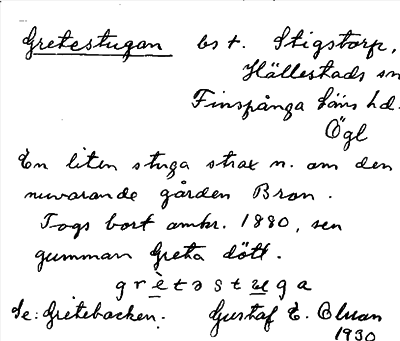 Gretestugan bst. Stigstorp,
Hällestads sn
Finspånga läns hd.
Ögl
En liten stuga strax n. om den
nuvarande gården Bron.
Togs bort omkr. 1880, sen
gumman Greta dött.
grètəstuga
Se: Gretebacken. Gustaf E.
1930